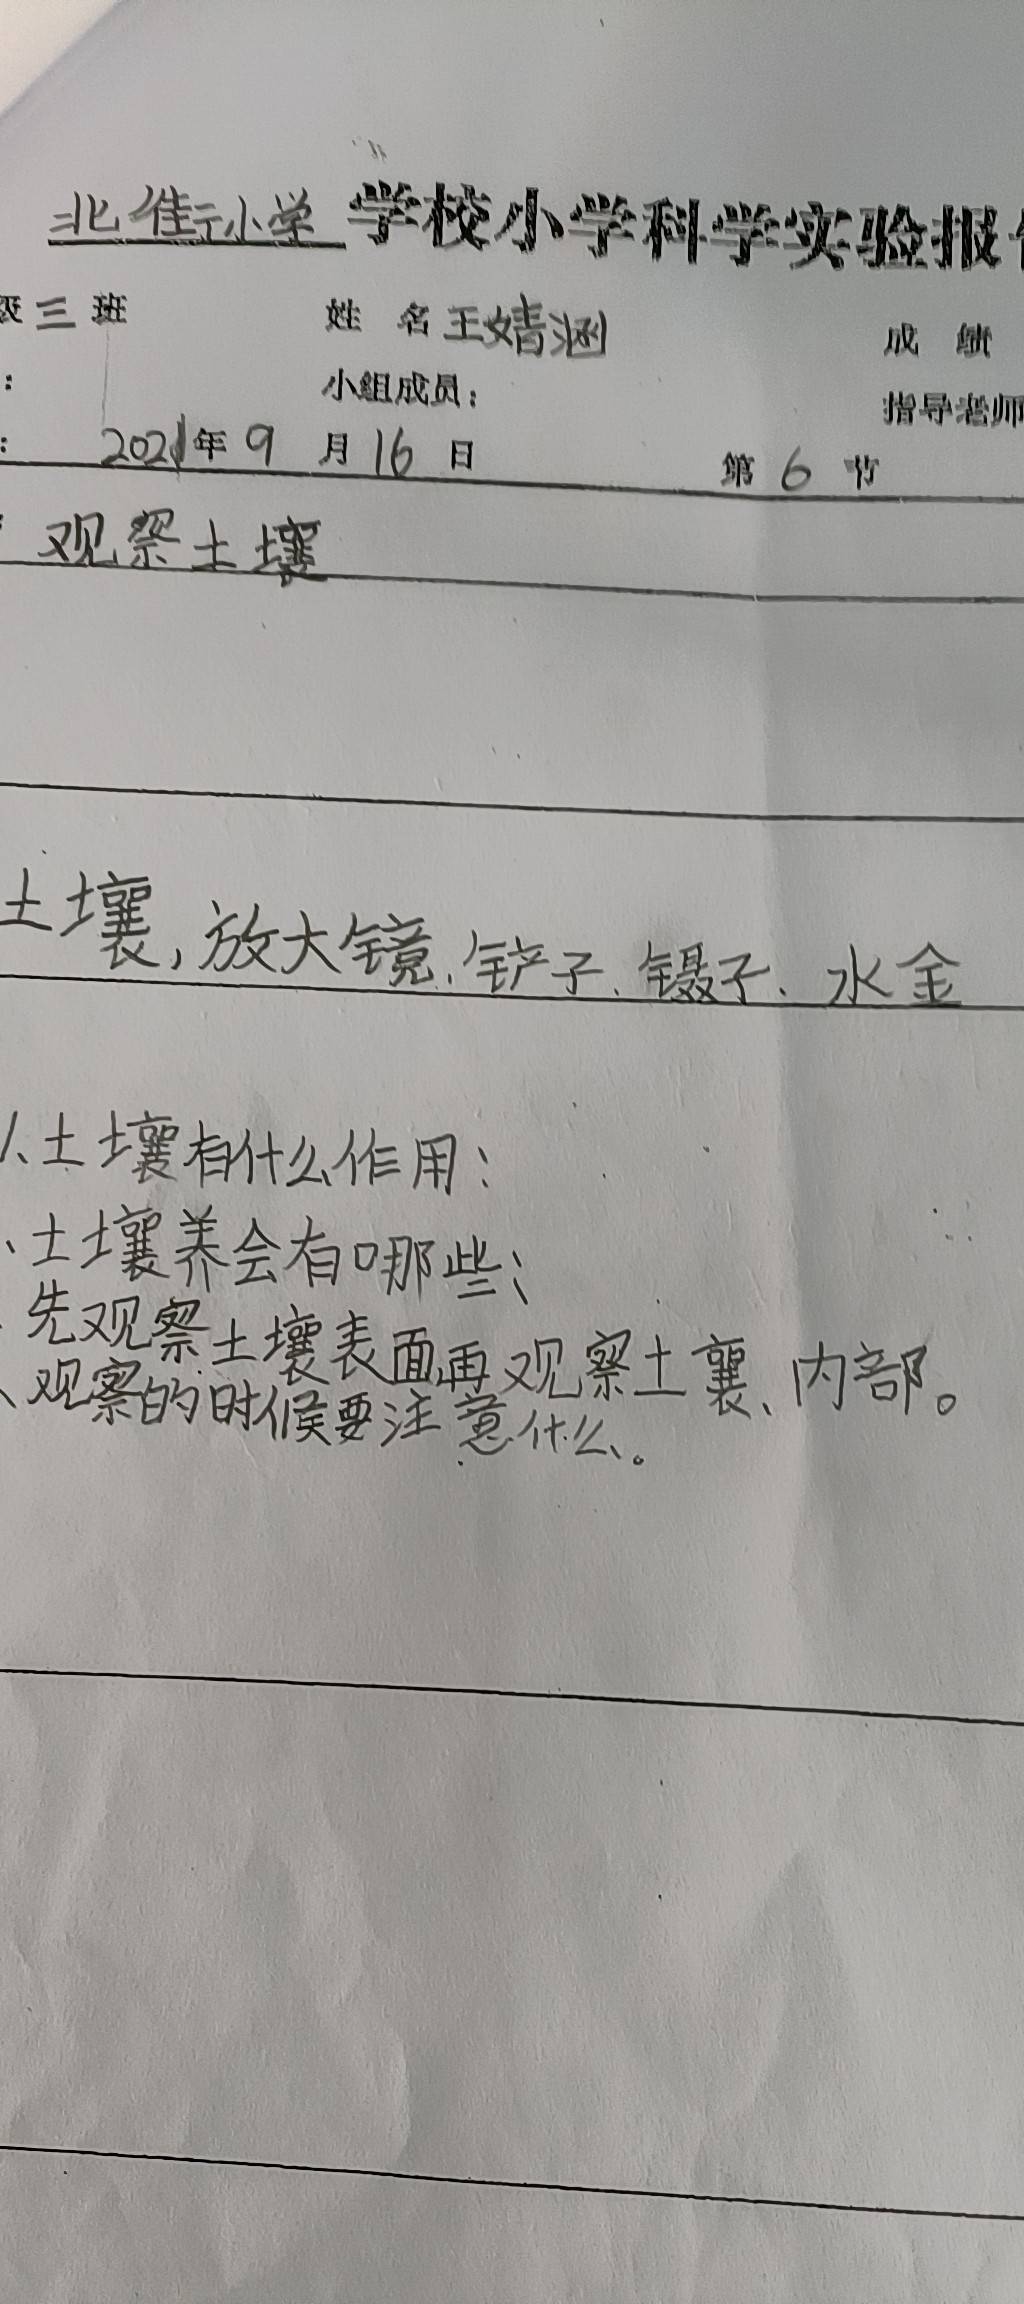 北街小学 学校小学科学实验报
级三班 姓 名 王婧涵 成 绩
: 小组成员: 指导老师
: 2021年 9 月 16 日 第 6 节
观察土壤
土壤,放大镜、铲子、镊子、水金
1、土壤有什么作用:
、土壤养会有哪些;
、先观察土壤表面再观察土襄、内部。
、观察的时候要注意什么、。